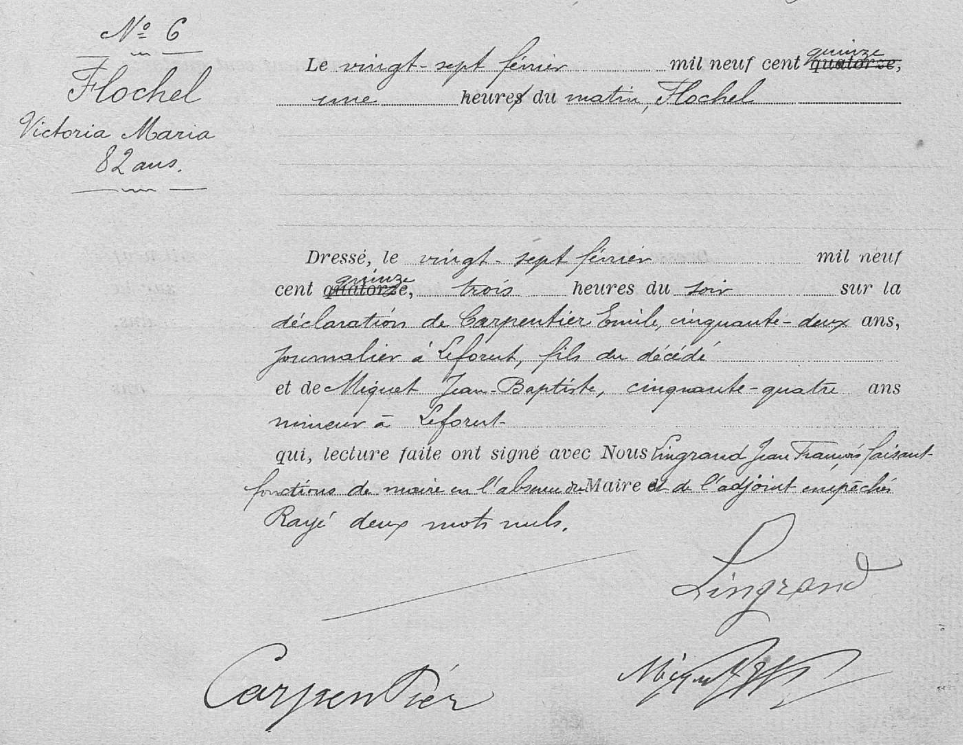 N° 6
Flochel
Victoria Maria
82 ans.
Le vingt-sept février mil neuf cent quatorze, quinze
une heures du matin, Flochel
Dressé, le vingt-sept février mil neuf
cent quatorze, quinze trois heures du soir sur la
déclaration de Carpentier Emile, cinquante-deux ans,
journalier à Leforest, fils du décédé
et de Miquet Jean-Baptiste, cinquante-quatre ans
mineur à Leforest
qui, lecture faite ont signé avec Nous Lingrand Jean François faisant
fonctions de maire en l'absence du Maire et de l'adjoint empêchés
Rayé deux mots nuls.
Lingrand
Carpentier
Miquet